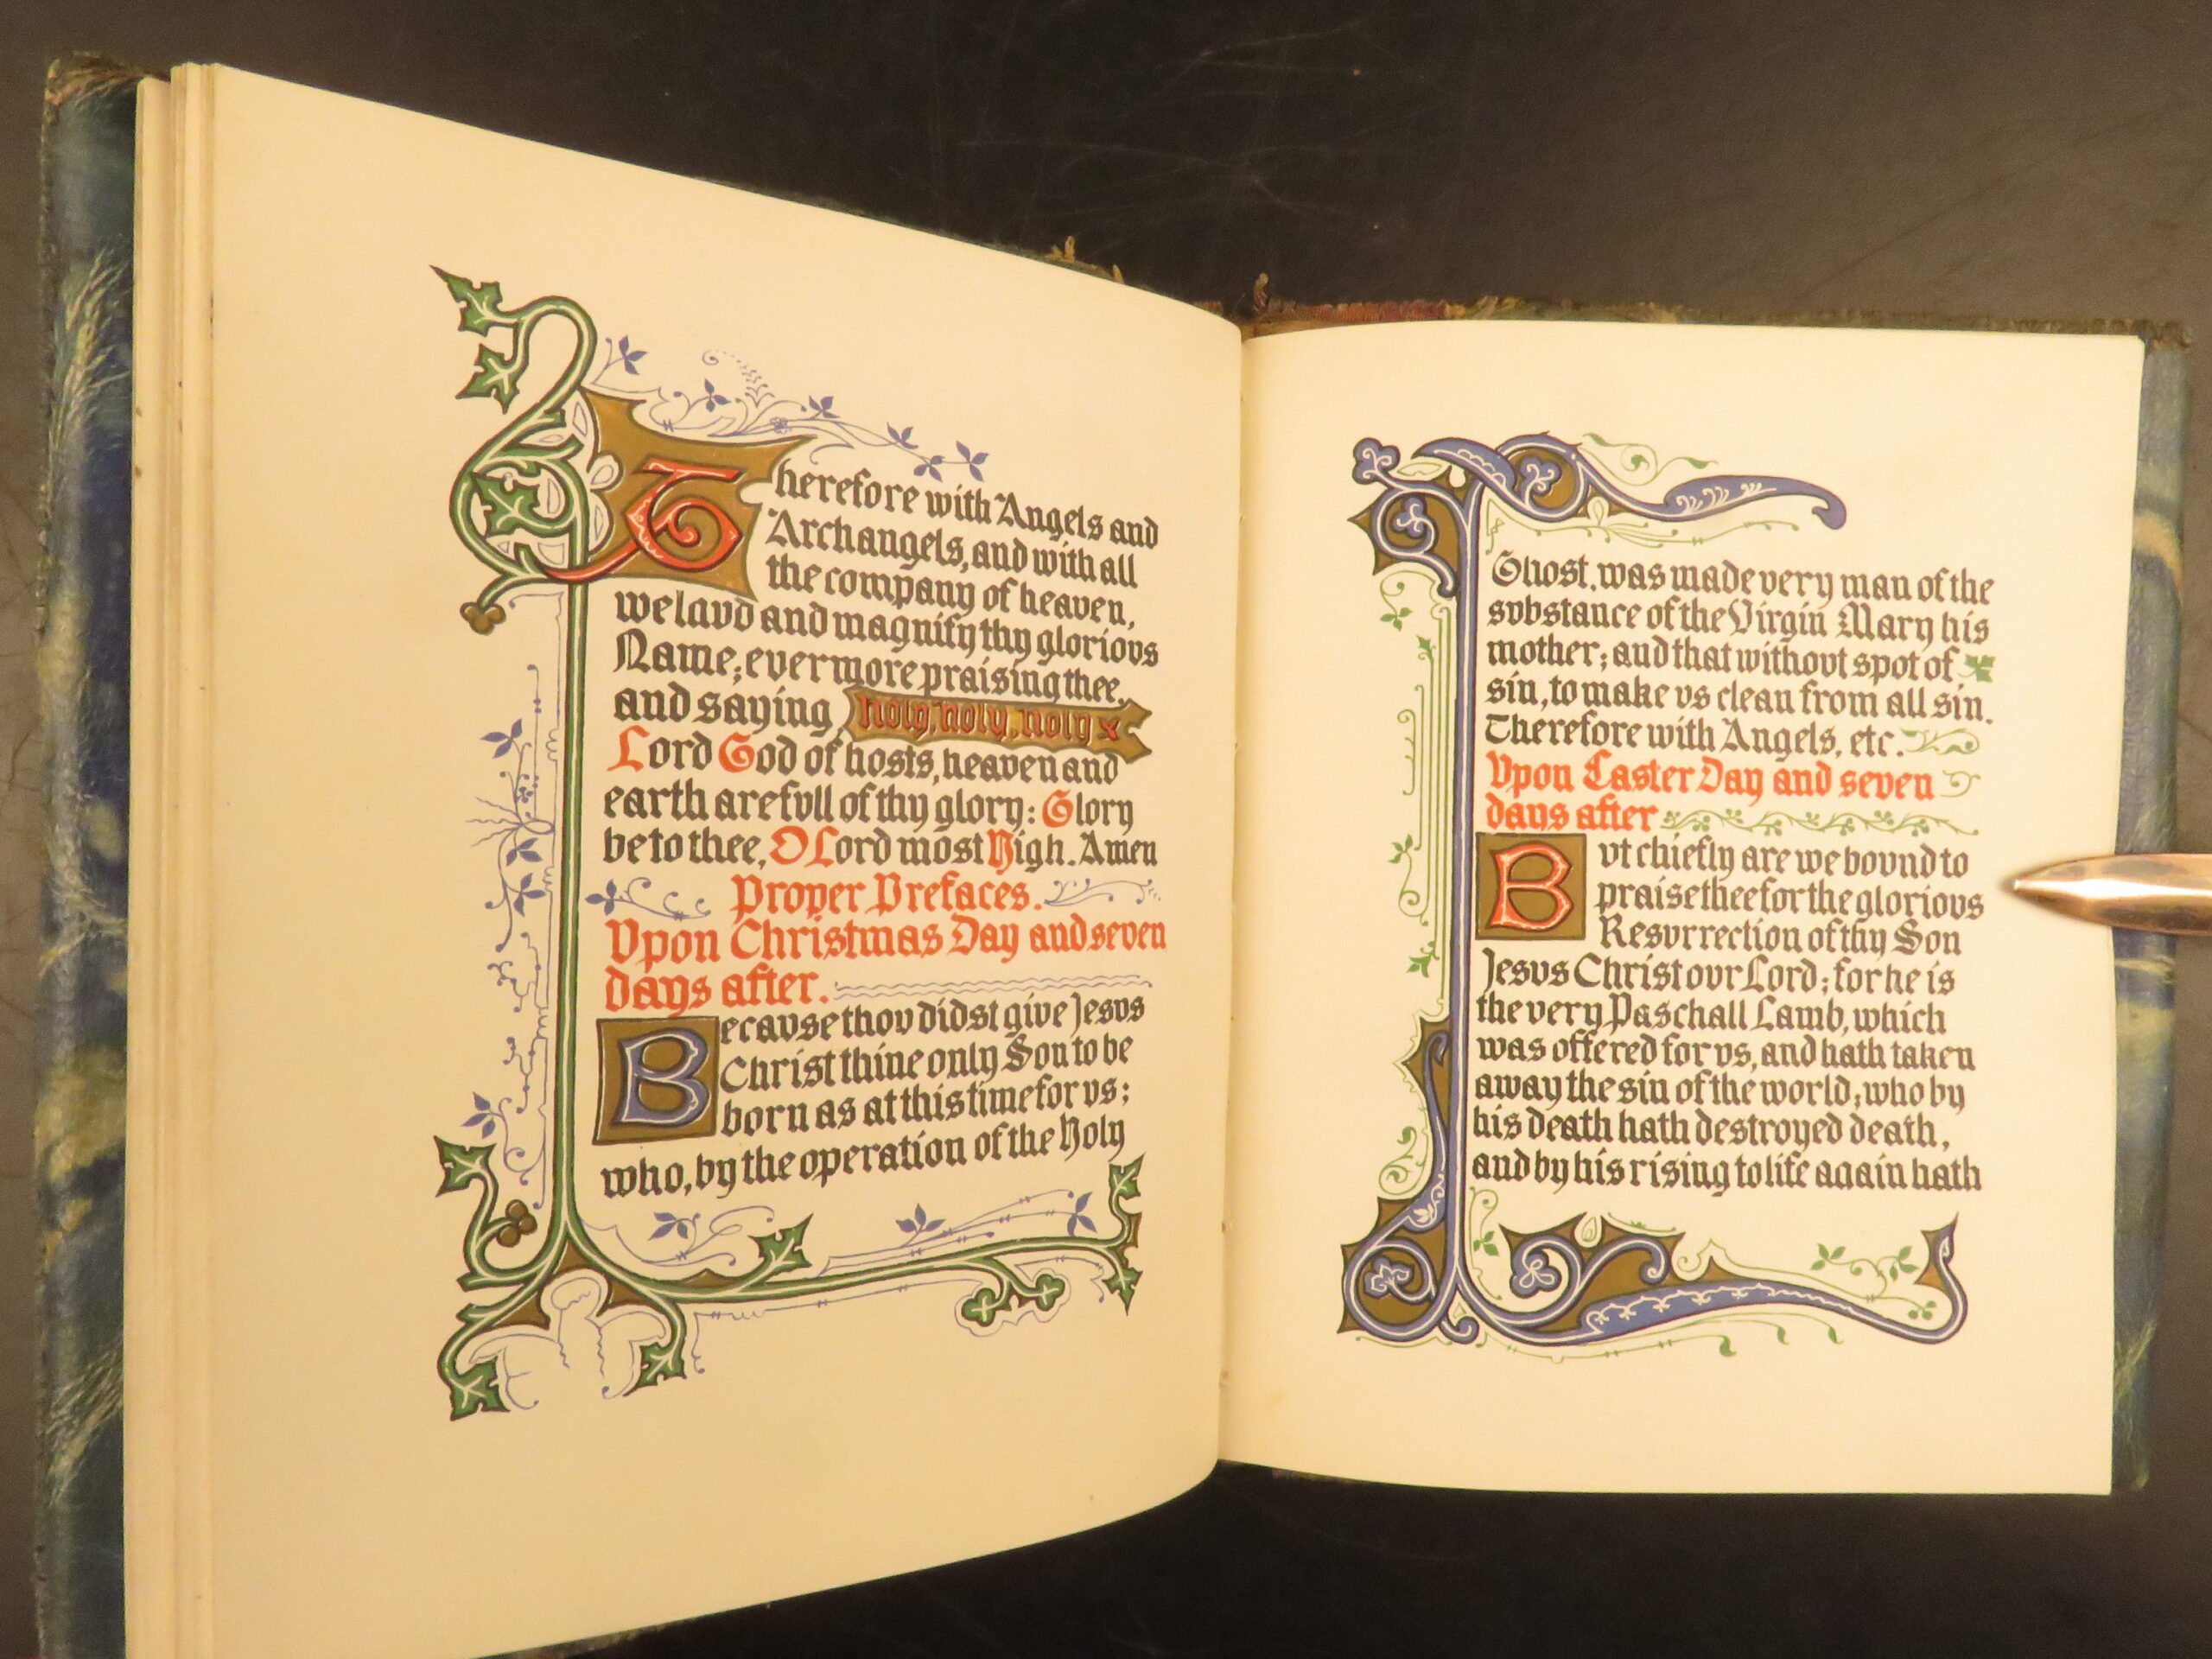 Therefore with Angels and
Archangels, and with all
the company of heaven,
we lavd and magnify thy gloriovs
Name; evermore praising thee,
and saying, holy, holy, holy
Lord God of hosts, heaven and
earth are fvll of thy glory: Glory
be to thee, O Lord most High. Amen
Proper Prefaces.
Vpon Christmas Day and seven
days after.
Becavse thov didst give Jesvs
Christ thine only Son to be
born as at this time for vs;
who, by the operation of the Holy
Ghost, was made very man of the
svbstance of the Virgin Mary his
mother; and that withovt spot of
sin, to make vs clean from all sin.
Therefore with Angels, etc.
Vpon Easter Day and seven
days after
Bvt chiefly are we bovnd to
praise thee for the gloriovs
Resvrrection of thy Son
Jesvs Christ ovr Lord; for he is
the very Paschall Lamb, which
was offered for vs, and hath taken
away the sin of the world; who by
his death hath destroyed death,
and by his rising to life again hath